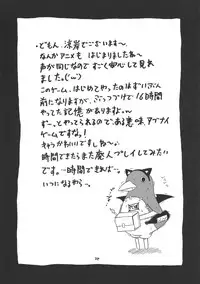 ・どもん、涼岸でございます〜
なんかアニメもはじまりましたね〜
声が同じなのですごく安心して見れ
ました(;ω;)
このゲーム、はじめてやったのはずいぶん
前になりますが、ぶっつづけで16時間
やってた記憶があります。
ず〜っとやってられるので、ある意味、アブナイ
ゲームですな!
キャラかわいいですしね〜。
時間できたらまた廃人プレイしてみたい
です。…時間できれば…
いつになるやら…